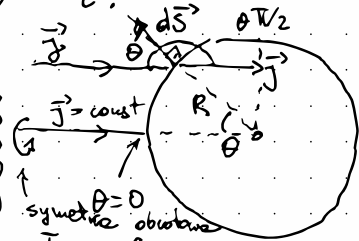 dS⃗ θ π/2
j⃗ θ j⃗
j⃗ = const R
θ
θ=0
symetria obrotowa